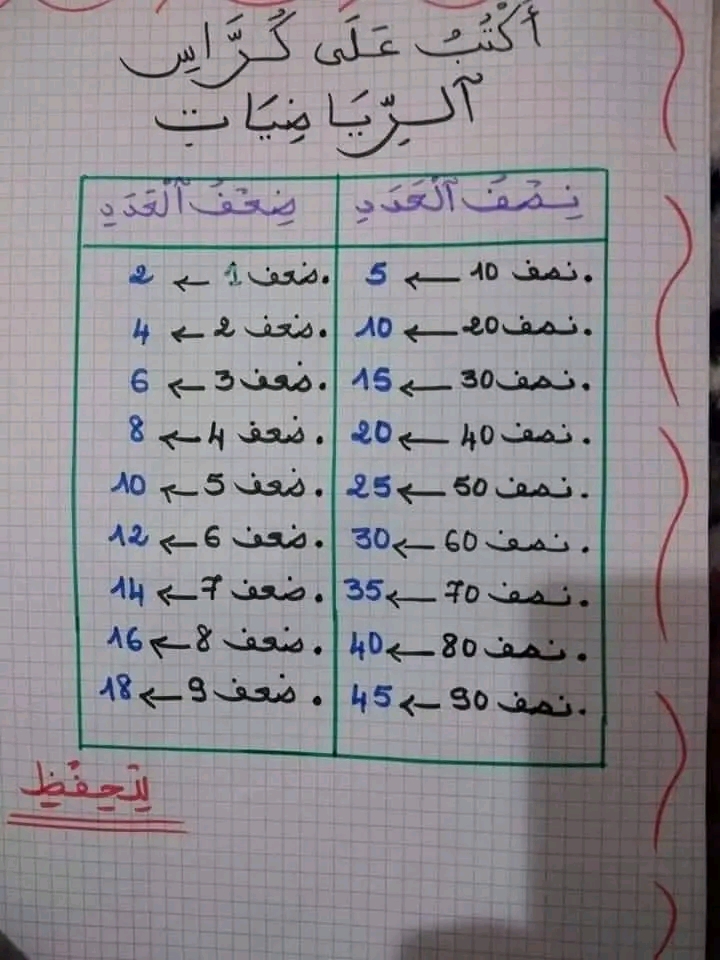 أَكْتُبُ عَلَى كُرَّاسِ
ٱلرِّيَاضِيَاتِ
نِصْفُ ٱلْعَدَدِ ضِعْفُ ٱلْعَدَدِ
.نصف 10 ← 5 .ضعف 1 ← 2
.نصف 20 ← 10 .ضعف 2 ← 4
.نصف 30 ← 15 .ضعف 3 ← 6
.نصف 40 ← 20 .ضعف 4 ← 8
.نصف 50 ← 25 .ضعف 5 ← 10
.نصف 60 ← 30 .ضعف 6 ← 12
.نصف 70 ← 35 .ضعف 7 ← 14
.نصف 80 ← 40 .ضعف 8 ← 16
.نصف 90 ← 45 .ضعف 9 ← 18
لِلْحِفْظِ